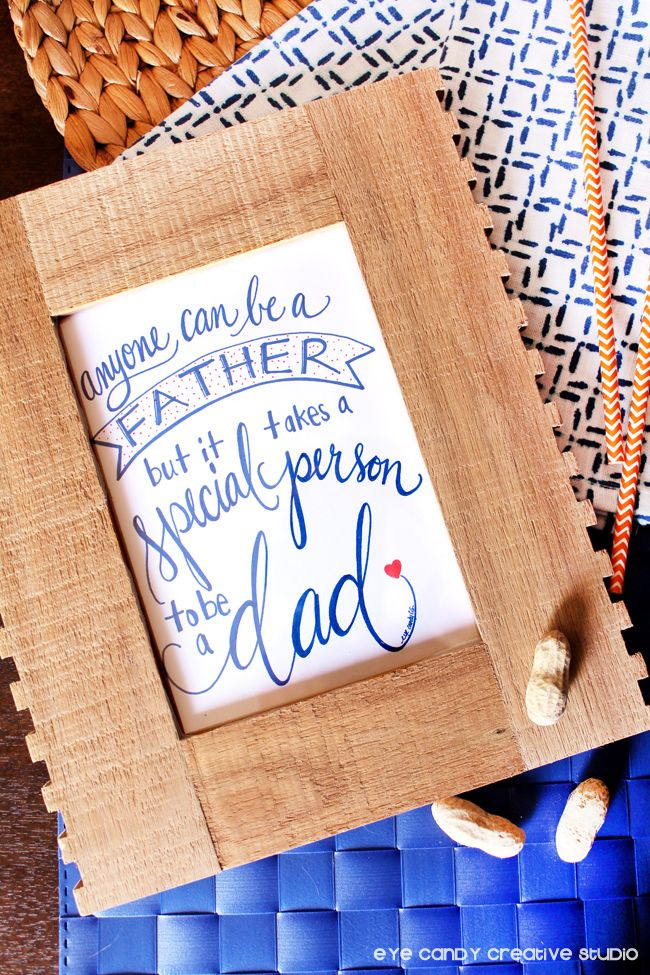 anyone can be a
FATHER
but it takes a
special person
to be
a dad
eye candy creative studio